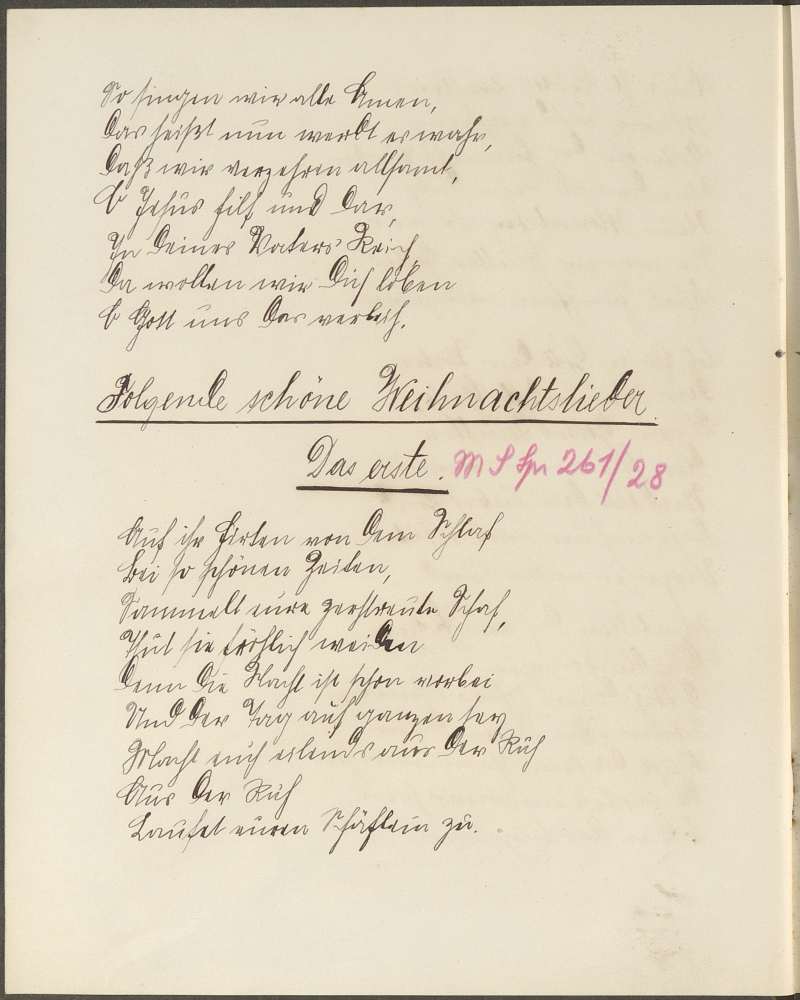 So singen wir alle Amen,
Das heißt nun werdt es wahr,
Daß wir verzehren allsamt,
O Jesus hilf und Dar,
In Deines Vaters Reich
Da wollen wir Dich loben
O Gott uns Das verleih.
Folgende schöne Weihnachtslieder.
Das erste. M S Spr 261/28
Auf ihr Hirten von Dem Schlaf
Bei so schönen Zeiten,
Sammelt eure zerstreute Schaf,
Thut sie fröhlich weiden
Denn Die Nacht ist schon vorbei
Und Der Tag auf ganzen
Macht euch eilends aus Der Ruh
Aus Der Ruh
Laufet euren Schäflein zu.